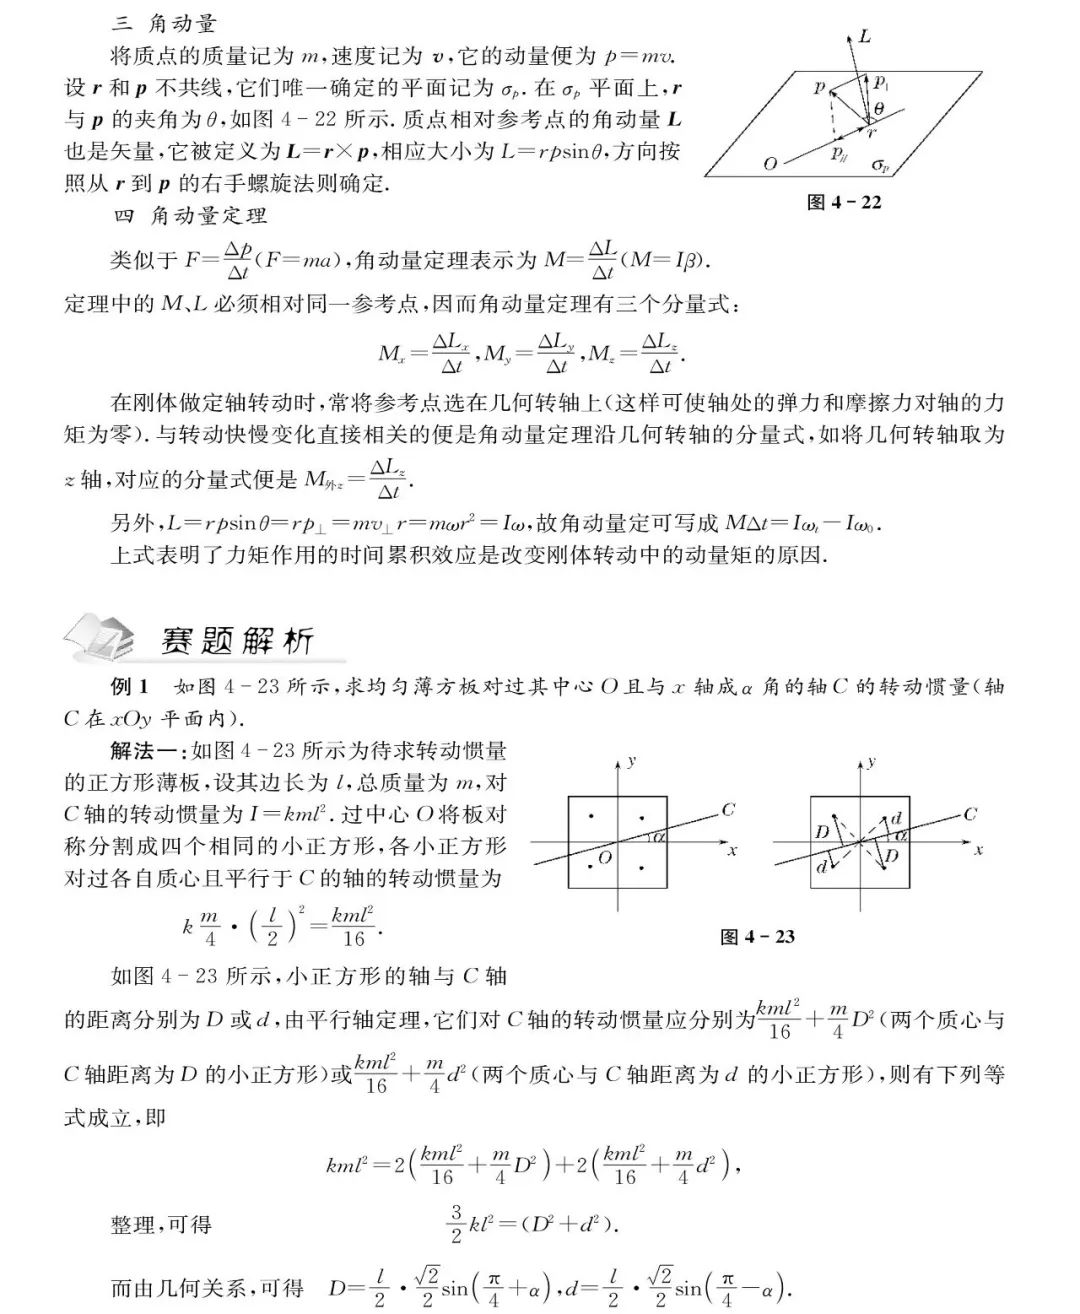 三 角动量
将质点的质量记为 m,速度记为 v,它的动量便为 p=mv.
设 r 和 p 不共线,它们唯一确定的平面记为 σₚ. 在 σₚ 平面上,r
与 p 的夹角为 θ,如图 4-22 所示. 质点相对参考点的角动量 L
也是矢量,它被定义为 L=r×p,相应大小为 L=rpsinθ,方向按
照从 r 到 p 的右手螺旋法则确定.
L
p
p⊥
θ
r
O
p∥
σₚ
图 4-22
四 角动量定理
类似于 F=Δp/Δt(F=ma),角动量定理表示为 M=ΔL/Δt(M=Iβ).
定理中的 M、L 必须相对同一参考点,因而角动量定理有三个分量式:
Mₓ=ΔLₓ/Δt,M_y=ΔL_y/Δt,M_z=ΔL_z/Δt.
在刚体做定轴转动时,常将参考点选在几何转轴上(这样可使轴处的弹力和摩擦力对轴的力
矩为零). 与转动快慢变化直接相关的便是角动量定理沿几何转轴的分量式,如将几何转轴取为
z 轴,对应的分量式便是 M外z=ΔL_z/Δt.
另外,L=rpsinθ=rp⊥=mv⊥r=mωr²=Iω,故角动量定可写成 MΔt=Iωₜ-Iω₀.
上式表明了力矩作用的时间累积效应是改变刚体转动中的动量矩的原因.
赛题解析
例 1 如图 4-23 所示,求均匀薄方板对过其中心 O 且与 x 轴成 α 角的轴 C 的转动惯量(轴
C 在 xOy 平面内).
解法一:如图 4-23 所示为待求转动惯量
的正方形薄板,设其边长为 l,总质量为 m,对
C 轴的转动惯量为 I=kml². 过中心 O 将板对
称分割成四个相同的小正方形,各小正方形
对过各自质心且平行于 C 的轴的转动惯量为
k m/4·(l/2)²=kml²/16.
y
C
α
O
x
y
d
C
D
α
D
d
x
图 4-23
如图 4-23 所示,小正方形的轴与 C 轴
的距离分别为 D 或 d,由平行轴定理,它们对 C 轴的转动惯量应分别为kml²/16+m/4D²(两个质心与
C 轴距离为 D 的小正方形)或kml²/16+m/4d²(两个质心与 C 轴距离为 d 的小正方形),则有下列等
式成立,即
kml²=2(kml²/16+m/4D²)+2(kml²/16+m/4d²),
整理,可得 3/2kl²=(D²+d²).
而由几何关系,可得 D=l/2·√2/2sin(π/4+α),d=l/2·√2/2sin(π/4-α).